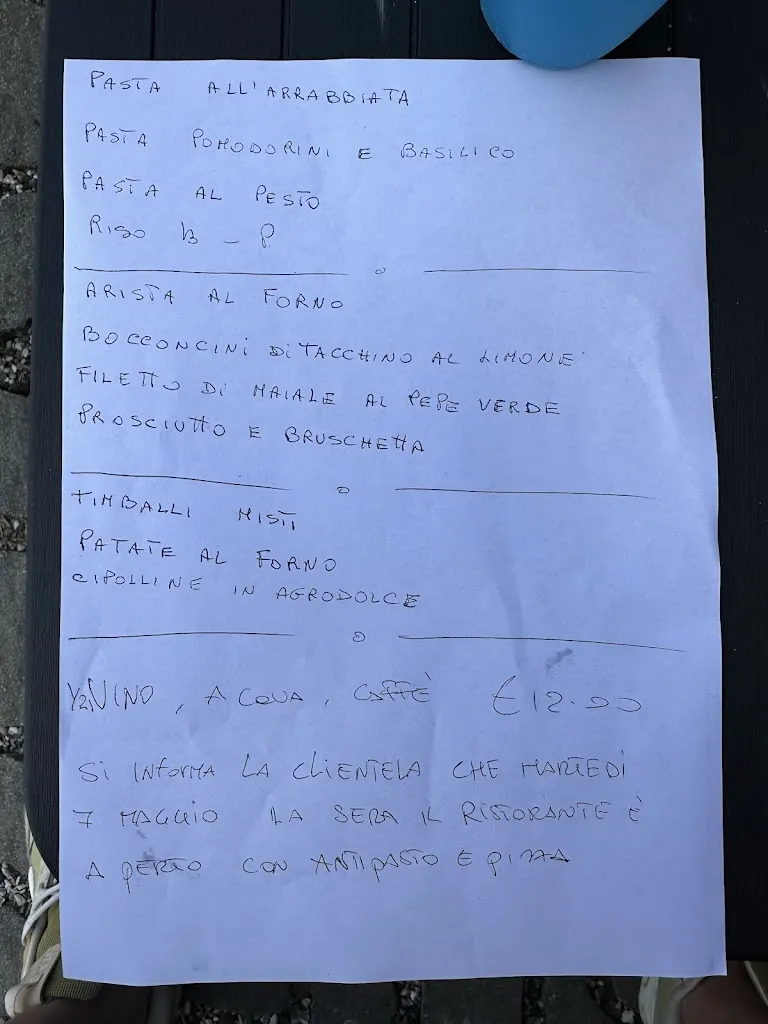 PASTA ALL'ARRABBIATA
PASTA POMODORINI E BASILICO
PASTA AL PESTO
RISO B - P
ARISTA AL FORNO
BOCCONCINI DI TACCHINO AL LIMONE
FILETTO DI MAIALE AL PEPE VERDE
PROSCIUTTO E BRUSCHETTA
TIMBALLI MISTI
PATATE AL FORNO
CIPOLLINE IN AGRODOLCE
1/2 VINO, ACQUA, CAFFÈ €12.00
SI INFORMA LA CLIENTELA CHE MARTEDÌ
7 MAGGIO LA SERA IL RISTORANTE È
APERTO CON ANTIPASTO E PIZZA